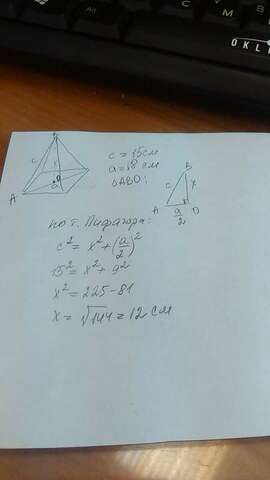 B
c
x
a
A
c = 15 см
a = 18 см
△ABO:
B
c
x
A
a/2
O
по т. Пифагора:
c² = x² + (a/2)²
15² = x² + 9²
x² = 225 - 81
x = √144 = 12 см
OKL